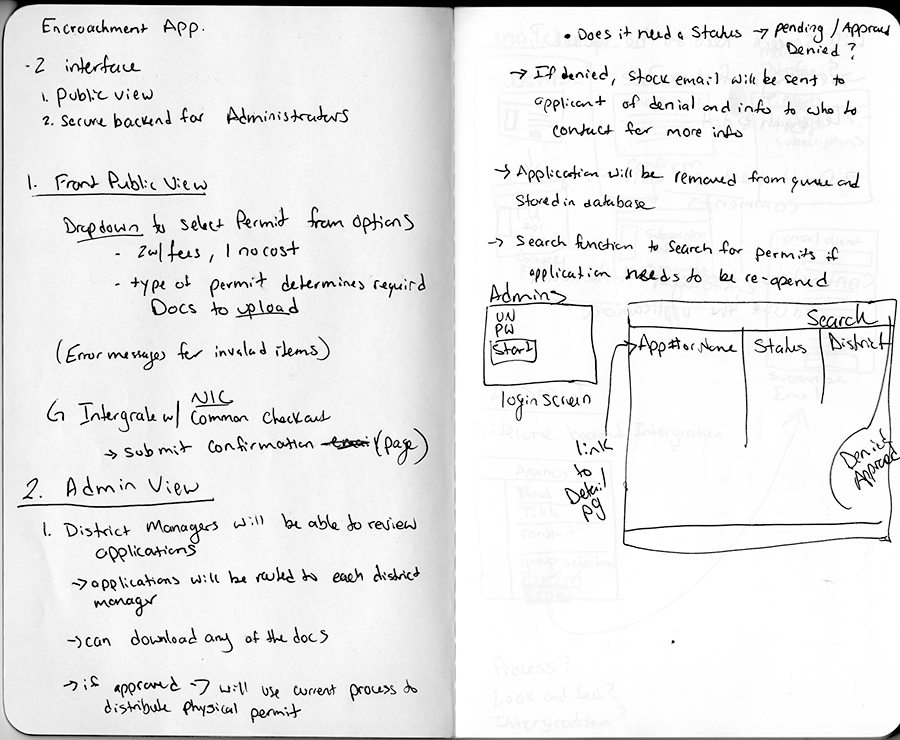 Encroachment App.
- 2 interface
1. Public view
2. Secure backend for Administrators
1. Front Public View
Dropdown to select Permit from options
- 2 w/ fees, 1 no cost
- type of permit determines required
Docs to upload
(Error messages for invalad items)
G Intergrate w/ NIC Common Checkout
→ submit confirmation (page)
2. Admin View
1. District Managers will be able to review
applications
→ applications will be routed to each district
manager
→ can download any of the docs
→ if approved → will use current process to
distribute physical permit
• Does it need a Status → pending / Approved
Denied?
→ If denied, stock email will be sent to
applicant of denial and info to who to
contact for more info
→ Application will be removed from queue and
stored in database
→ Search function to search for permits if
application needs to be re-opened
Admins
UN
PW
Start
login screen
Search
App# or Name Status District
link
to
Detail
pg
Denied
Approved
Process?
Look and feel?
Intergration?